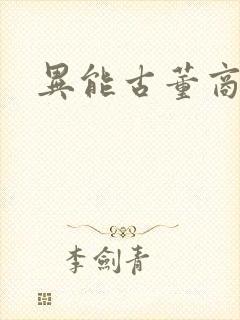 異能古董商
李劍青